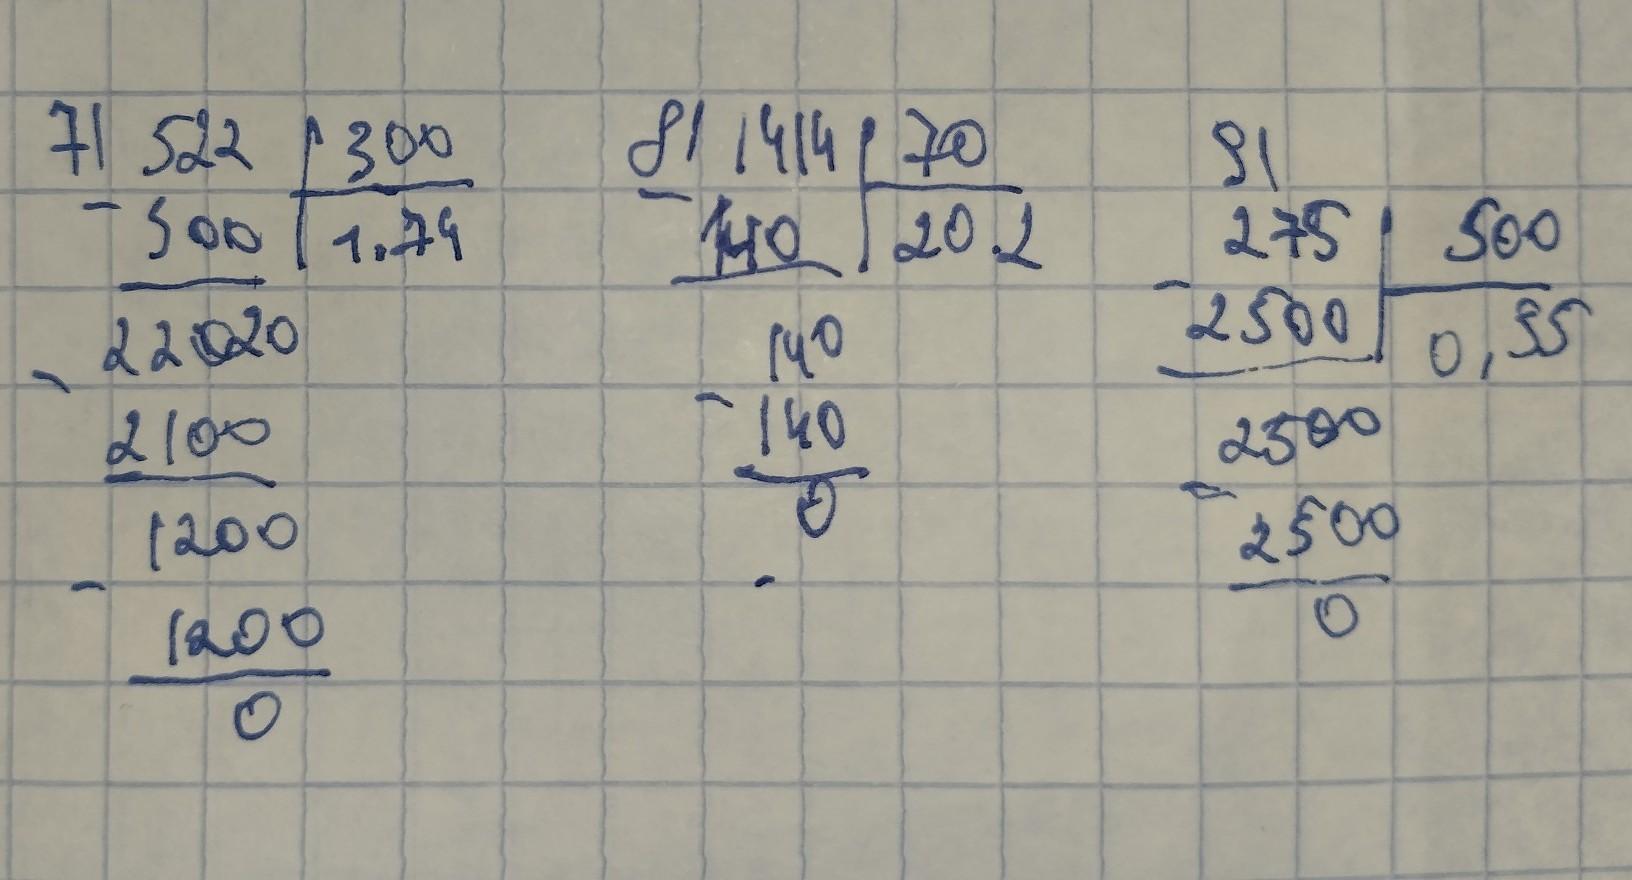 7) 522 | 300
- 300 | 1.74
22020
- 2100
1200
- 1200
0
8) 1414 | 70
- 140 | 20.2
140
- 140
0
9)
275 | 500
- 2500 | 0,55
2500
- 2500
0